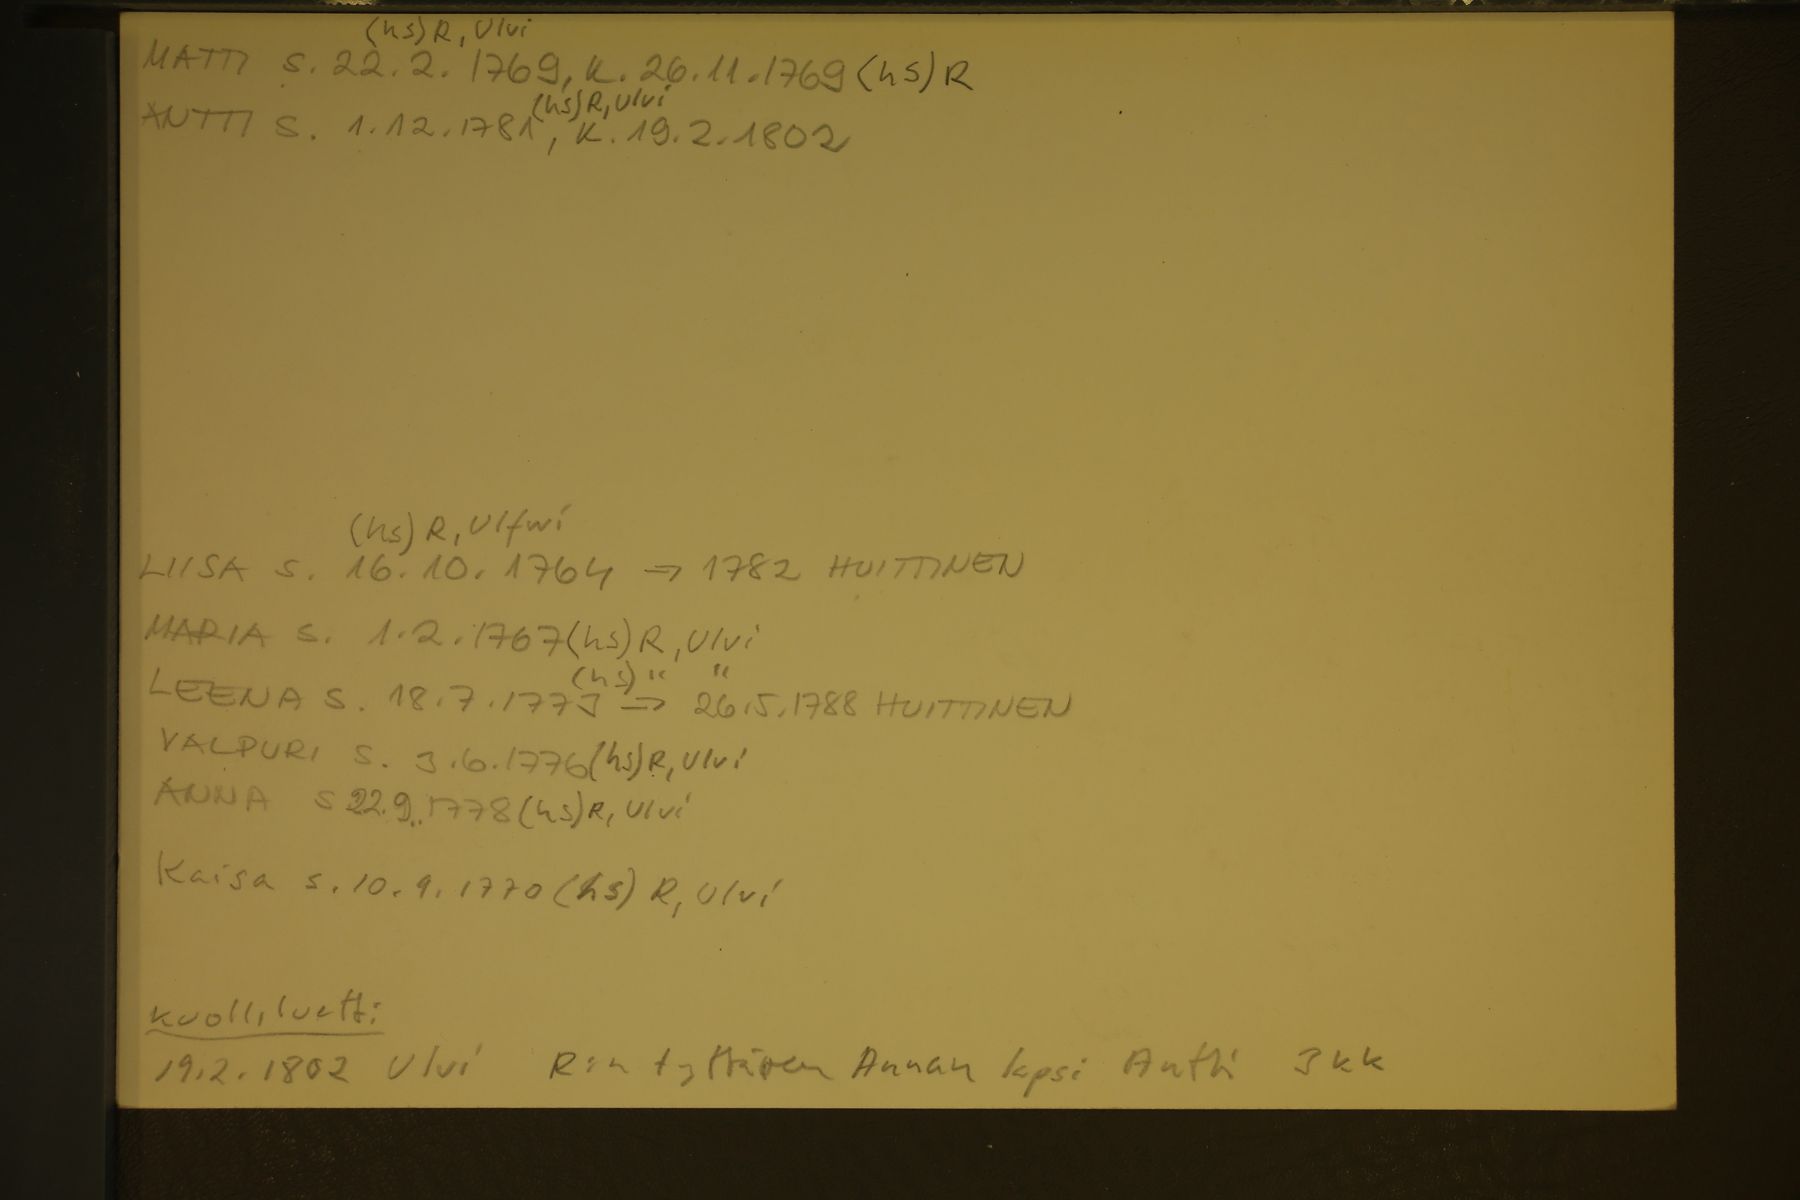 (hs) R, Ulvi
MATTI s. 22.2.1769, K. 26.11.1769 (hs) R
(hs) R, Ulvi
ANTTI s. 1.12.1781, K. 19.2.1802
(hs) R, Ulfwi
LIISA s. 16.10.1764 → 1782 HUITTINEN
MARIA s. 1.2.1767 (hs) R, Ulvi
(hs) " "
LEENA s. 18.7.1773 → 26.5.1788 HUITTINEN
VALPURI s. 3.6.1776 (hs) R, Ulvi
ANNA s 22.9.1778 (hs) R, Ulvi
Kaisa s. 10.9.1770 (hs) R, Ulvi
kuoll. luett:
19.2.1802 Ulvi R:n tyttären Annan lapsi Antti 3 kk